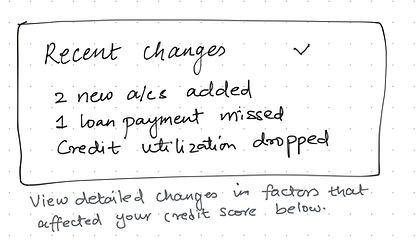 Recent changes
2 new a/cs added
1 loan payment missed
Credit utilization dropped
View detailed changes in factors that
affected your credit score below.